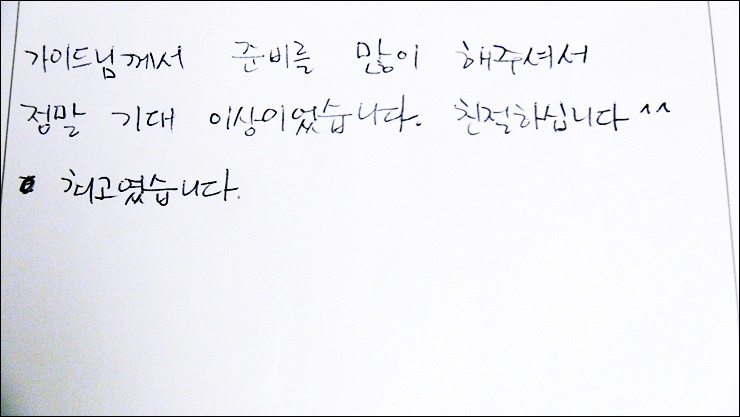 가이드님께서 준비를 많이 해주셔서
정말 기대 이상이었습니다. 친절하십니다^^
최고였습니다.